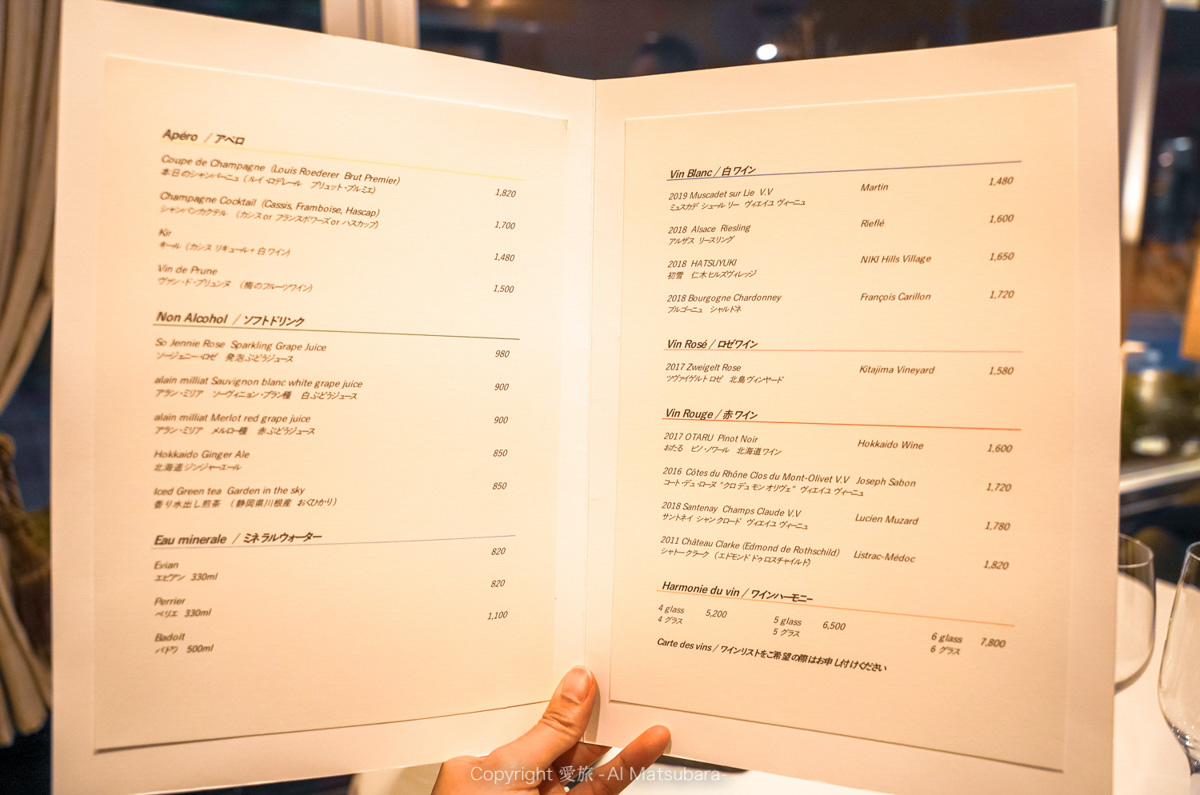 Apéro / アペロ
Coupe de Champagne (Louis Roederer Brut Premier)
本日のシャンパーニュ (ルイ・ロデレール ブリュット・プルミエ)
1,820
Champagne Cocktail (Cassis, Framboise, Hascap)
シャンパンカクテル (カシス or フランスボワーズ or ハスカップ)
1,700
Kir
キール (カシス リキュール + 白ワイン)
1,480
Vin de Prune
ヴァン・ド・プリュンヌ (梅のフルーツワイン)
1,500
Non Alcohol / ソフトドリンク
So Jennie Rose Sparkling Grape Juice
ソージェニー・ロゼ 発泡ぶどうジュース
980
alain milliat Sauvignon blanc white grape juice
アラン・ミリア ソーヴィニョン・ブラン種 白ぶどうジュース
900
alain milliat Merlot red grape juice
アラン・ミリア メルロー種 赤ぶどうジュース
900
Hokkaido Ginger Ale
北海道ジンジャーエール
850
Iced Green tea Garden in the sky
香り水出し煎茶 (静岡県川根産 おくひかり)
850
Eau minerale / ミネラルウォーター
Evian
エビアン 330ml
820
Perrier
ペリエ 330ml
820
Badoit
バドワ 500ml
1,100
Vin Blanc / 白ワイン
2019 Muscadet sur Lie V.V Martin 1,480
ミュスカデ シュール リー ヴィエイユ ヴィーニュ
2018 Alsace Riesling Rieflé 1,600
アルザス リースリング
2018 HATSUYUKI NIKI Hills Village 1,650
初雪 仁木ヒルズヴィレッジ
2018 Bourgogne Chardonney François Carillon 1,720
ブルゴーニュ シャルドネ
Vin Rosé / ロゼワイン
2017 Zweigelt Rose Kitajima Vineyard 1,580
ツヴァイゲルト ロゼ 北島ヴィンヤード
Vin Rouge / 赤ワイン
2017 OTARU Pinot Noir Hokkaido Wine 1,600
おたる ピノ・ノワール 北海道ワイン
2016 Côtes du Rhône Clos du Mont-Olivet V.V Joseph Sabon 1,720
コート・デュ・ローヌ "クロ デュ モン オリヴェ" ヴィエイユ ヴィーニュ
2018 Santenay Champs Claude V.V Lucien Muzard 1,780
サントネイ シャン クロード ヴィエイユ ヴィーニュ
2011 Château Clarke (Edmond de Rothschild) Listrac-Médoc 1,820
シャトー クラーク (エドモンド ドゥ ロスチャイルド)
Harmonie du vin / ワインハーモニー
4 glass 5,200 5 glass 6,500 6 glass 7,800
4 グラス 5 グラス 6 グラス
Carte des vins / ワインリストをご希望の際はお申し付けください
Copyright 愛旅 -AI Matsubara-